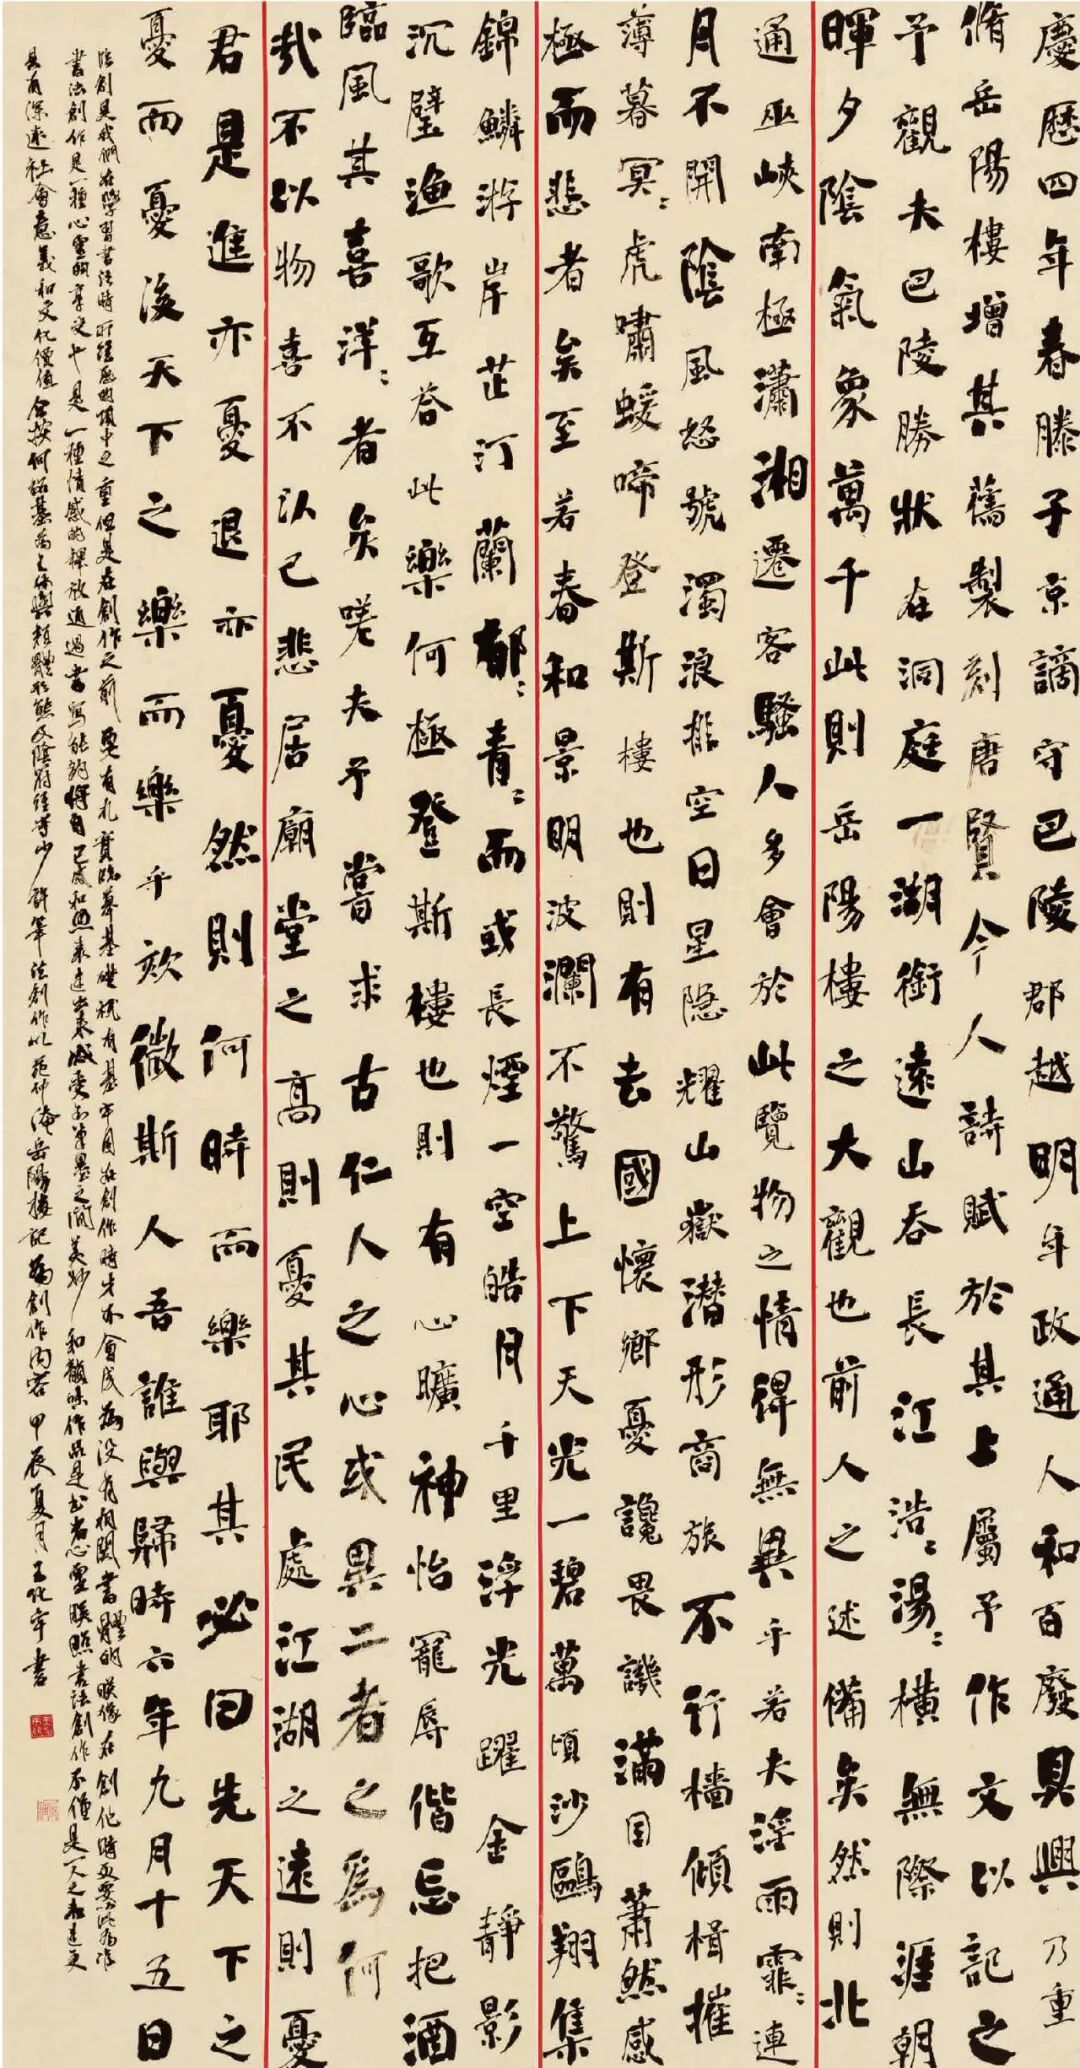 慶曆四年春滕子京謫守巴陵郡越明年政通人和百廢具興乃重
脩岳陽樓增其舊製刻唐賢今人詩賦於其上屬予作文以記之
予觀夫巴陵勝狀在洞庭一湖銜遠山吞長江浩〻湯〻橫無際涯朝
暉夕陰氣象萬千此則岳陽樓之大觀也前人之述備矣然則北
通巫峽南極瀟湘遷客騷人多會於此覽物之情得無異乎若夫淫雨霏〻連
月不開陰風怒號濁浪排空日星隐耀山嶽潛形商旅不行檣傾楫摧
薄暮冥〻虎嘯蝯啼登斯樓也則有去國懷鄉憂讒畏譏滿目蕭然感
極而悲者矣至若春和景明波瀾不驚上下天光一碧萬頃沙鷗翔集
錦鱗游岸芷汀蘭郁〻青〻而或長煙一空皓月千里浮光躍金靜影
沉璧漁歌互荅此樂何極登斯樓也則有心曠神怡寵辱偕忘把酒
臨風其喜洋〻者矣嗟夫予嘗求古仁人之心或異二者之為何
哉不以物喜不以己悲居廟堂之高則憂其民處江湖之遠則憂
君是進亦憂退亦憂然則何時而樂耶其必曰先天下之
憂而憂後天下之樂而樂乎欸微斯人吾誰與歸時六年九月十五日
法創是我們在學習書法時所經歷的項中之重但是在創作之前要有扎實臨摹基礎秖有基牢固在創作時才不會成為没有相關書體的映像在創作時
書法創作是一種心靈的享受也是一種情感的釋放通過書寫能夠將自己感和思表達出來感受到筆墨之間美妙和韻味作品是書者心靈映照書法創作不僅是一人之表達更
具有深遠社會意義和文化價值今按何紹基為主体與顏體形態筆法創作以范仲淹岳陽樓記為創作内容甲辰夏月王化宇書